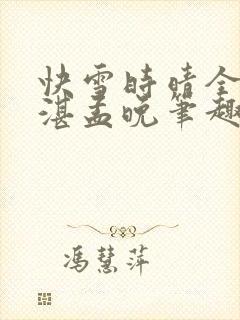 快雪時晴全
湛盂晚筆趣
馮慧萍